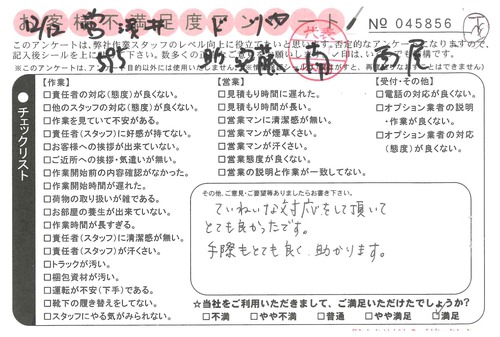 お客様不満足度アンケート
№ 045856
このアンケートは、弊社作業スタッフのレベル向上に役立てたいと思います。否定的なアンケートになりますので、
※このアンケートは、アンケート目的以外には使用いたしません。
チェックリスト
【作業】
□責任者の対応(態度)が良くない。
□他のスタッフの対応(態度)が良くない。
□作業を見ていて不安がある。
□責任者(スタッフ)に好感が持てない。
□お客様への挨拶が出来ていない。
□ご近所への挨拶・気遣いが無い。
□作業開始前の内容確認がなかった。
□作業開始時間が遅れた。
□荷物の取り扱いが雑である。
□お部屋の養生が出来ていない。
□作業時間が長すぎる。
□責任者(スタッフ)に清潔感が無い。
□責任者(スタッフ)が汗くさい。
□トラックが汚い。
□梱包資材が汚い。
□運転が不安(下手)である。
□靴下の履き替えをしてない。
□スタッフにやる気がみられない。
【営業】
□見積もり時間に遅れた。
□見積もり時間が長い。
□営業マンに清潔感が無い。
□営業マンが煙草くさい。
□営業マンが汗くさい。
□営業態度が良くない。
□営業の説明と作業が一致してない。
【受付・その他】
□電話の対応が良くない。
□オプション業者の説明
・作業が良くない。
□オプション業者の対応
(態度)が良くない。
その他、ご意見・ご要望等ありましたらお書き下さい。
ていねいな対応をして頂いて
とても良かったです。
手際もとても良く助かります。
☆当社をご利用いただきまして、ご満足いただけたでしょうか?
□不満 □やや不満 □普通 □やや満足 □満足